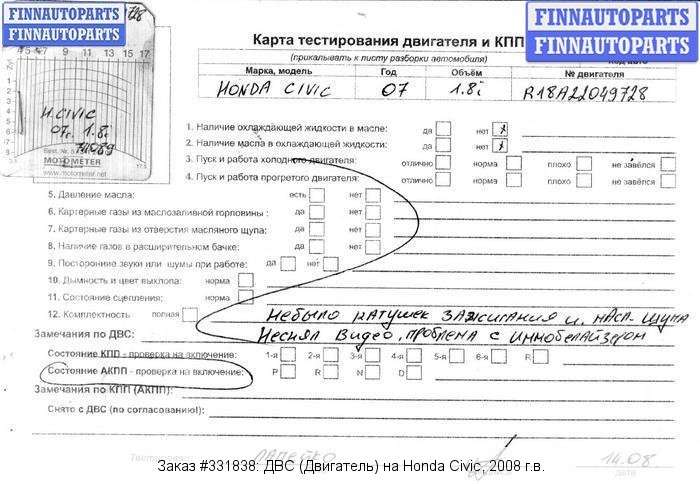 FINNAUTOPARTS
FINNAUTOPARTS
FINNAUTOPARTS
FINNAUTOPARTS
728
4 5 7 9 11 13 15 17
H.CIVIC
07г. 1.8i
MOTOMETER
www.motometer.net
Карта тестирования двигателя и КПП
(прикалывать к листу разборки автомобиля)
Марка, модель Год Объём № двигателя
HONDA CIVIC 07 1.8i R18A22049728
1. Наличие охлаждающей жидкости в масле: да нет
2. Наличие масла в охлаждающей жидкости: да нет
3. Пуск и работа холодного двигателя: отлично норма плохо не завёлся
4. Пуск и работа прогретого двигателя: отлично норма плохо не завёлся
5. Давление масла: есть нет
6. Картерные газы из маслозаливной горловины : да нет
7. Картерные газы из отверстия масляного щупа: да нет
8. Наличие газов в расширительном бачке: да нет
9. Посторонние звуки или шумы при работе: да нет
10. Дымность и цвет выхлопа: норма
11. Состояние сцепления: норма
12. Комплектность полная
Небыло катушек зажигания и масл. щупа
Замечания по ДВС: Неснял видео, проблема с иммобелайзером
Состояние КПП - проверка на включение: 1-я 2-я 3-я 4-я 5-я 6-я R
Состояние АКПП - проверка на включение: P R N D
Замечания по КПП (АКПП):
Снято с ДВС (по согласованию!):
14.08
дата
Заказ #331838. ДВС (Двигатель) на Honda Civic, 2008 г.в.